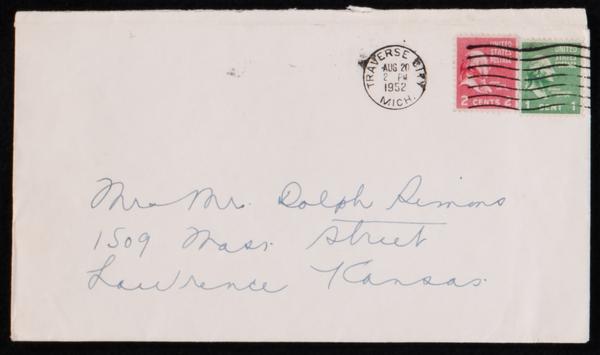 TRAVERSE CITY
AUG 20
2 PM
1952
MICH.
UNITED
STATES
POSTAGE
2 CENTS 2
UNITED
STATES
POSTAGE
1 CENT 1
Mr. Mr. Dolph Simons
1509 Mass. Street
Lawrence Kansas.